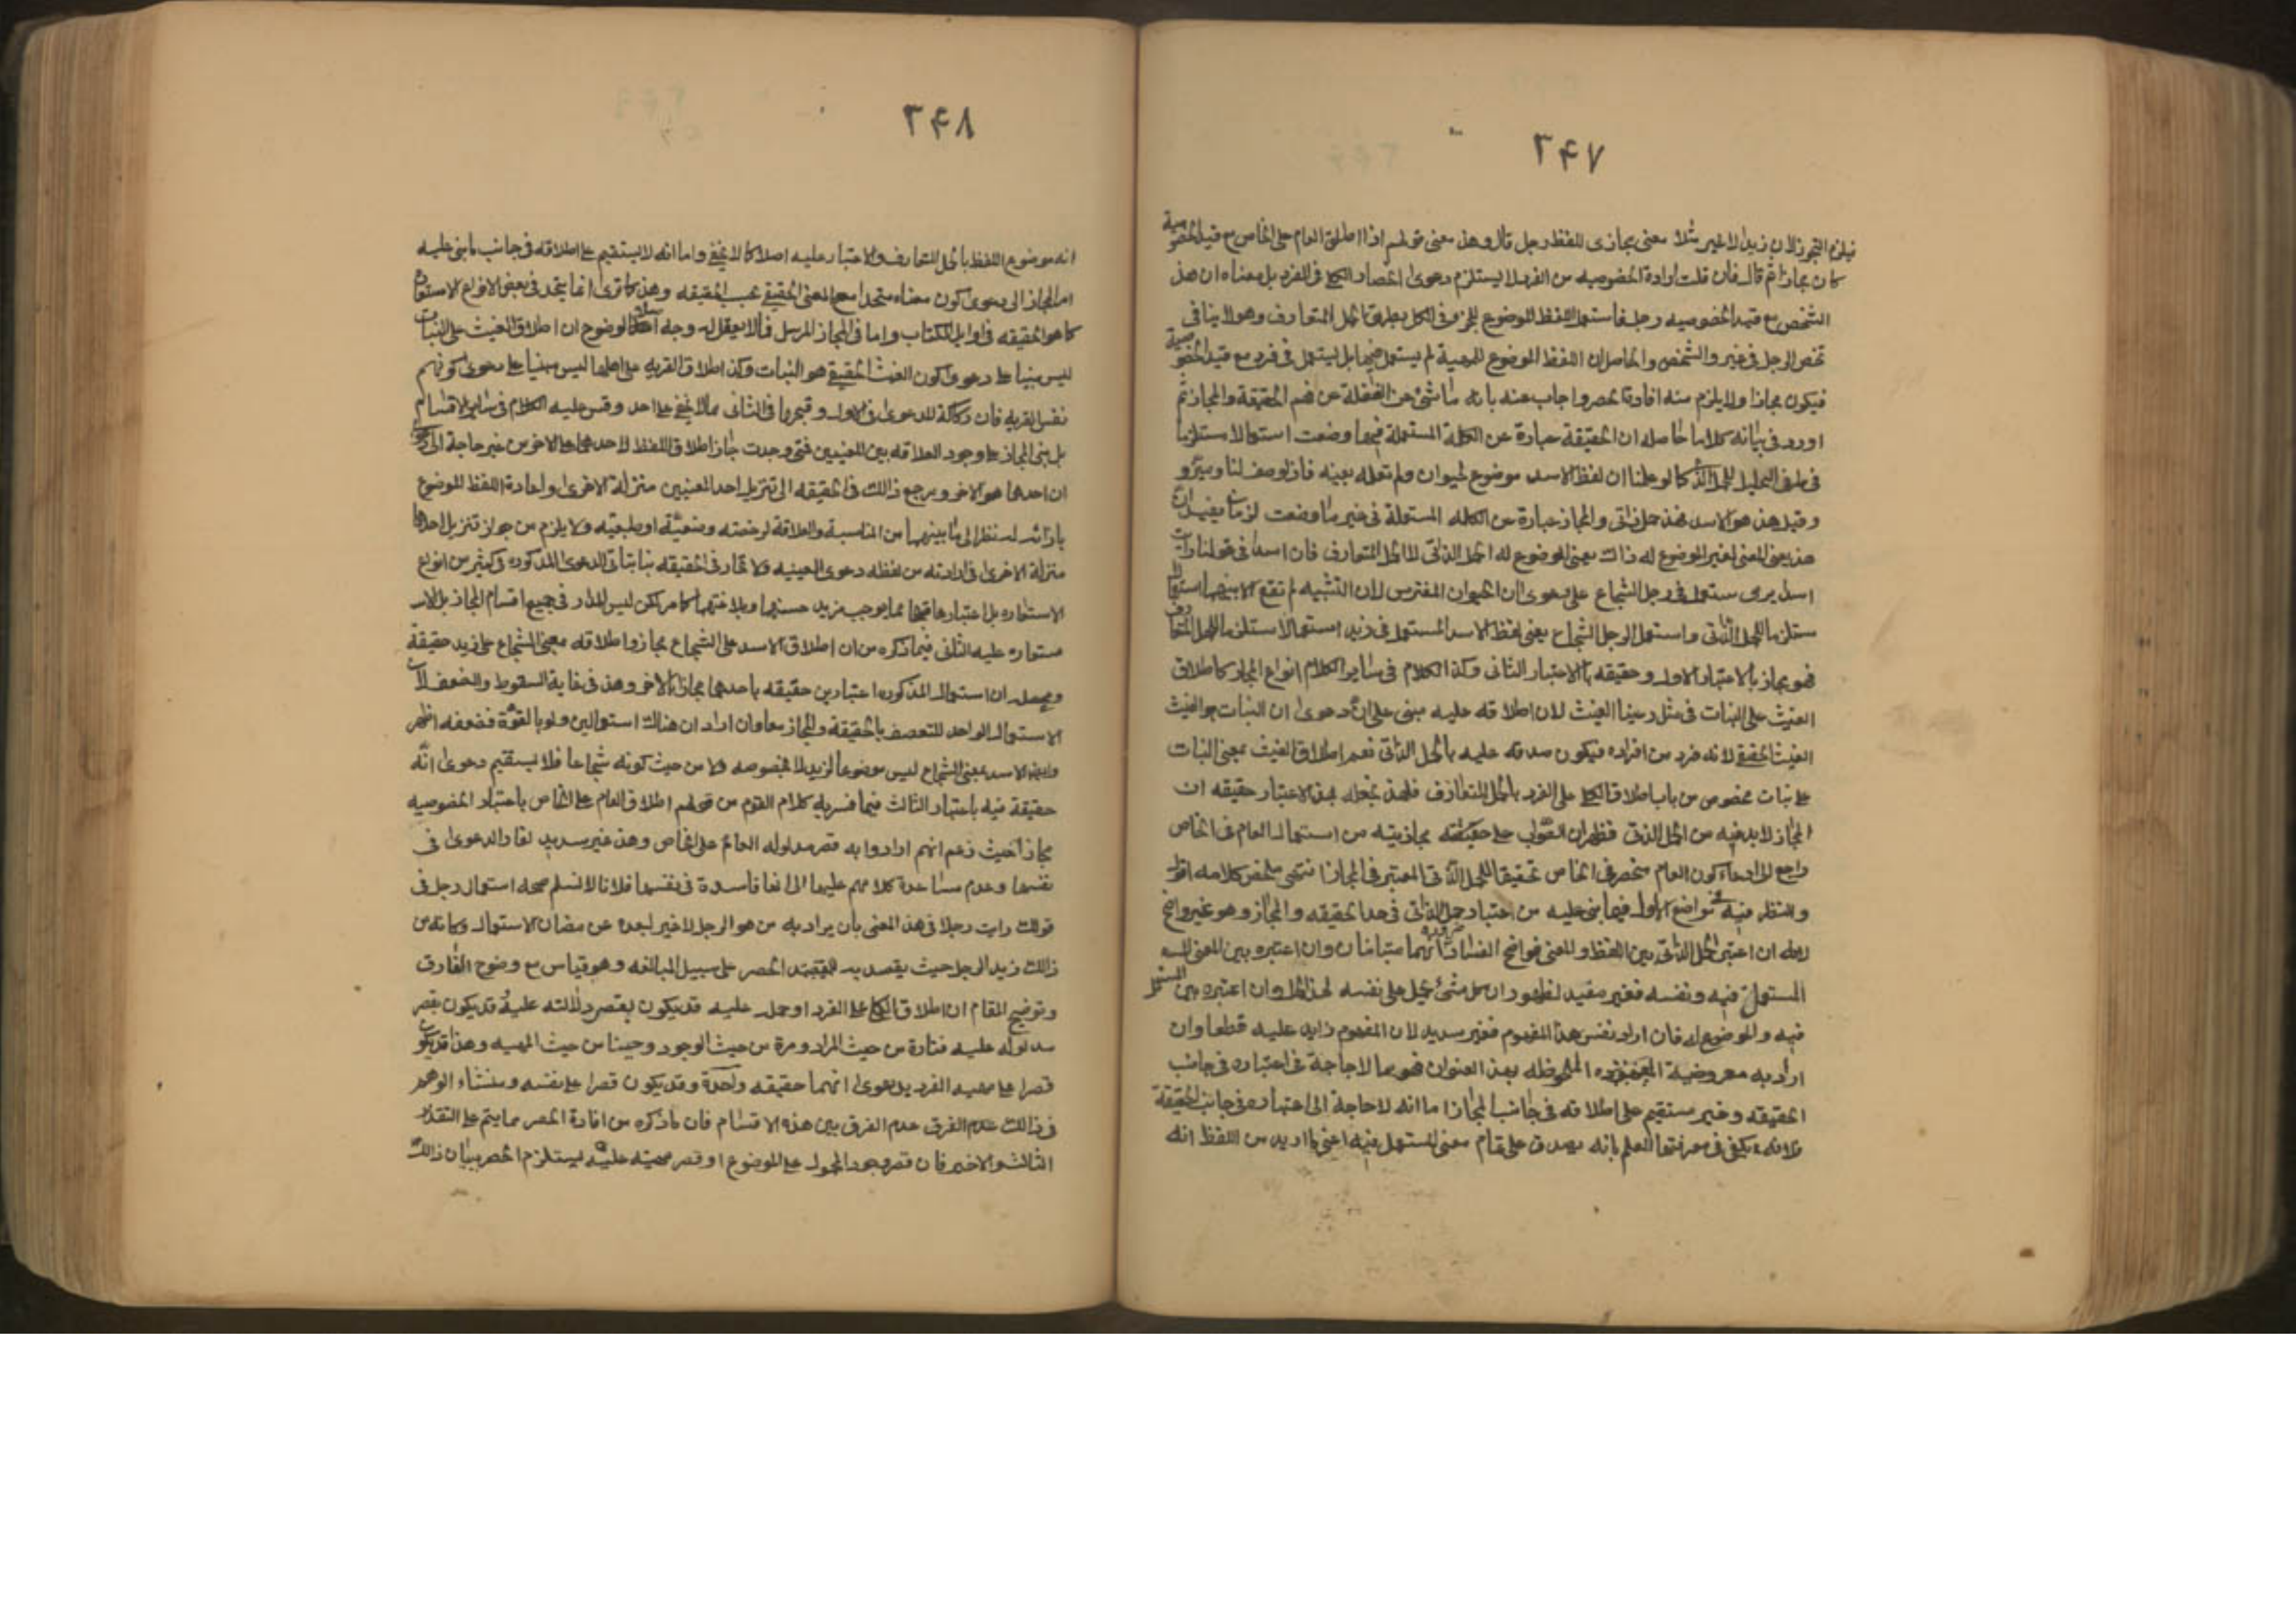 ۳۴۷
فيلزم التجوز لان زيدا لا غير مثلا معنى مجازى للفظ رجل قال وهذا معنى قولهم اذا اطلق العام على الخاص مع قيد الخصوصية
كان مجازا ثم قال فان قلت ارادة الخصوصيه من الفرد لا يستلزم دعوى انحصار الكلى فى الفرد بل معناه ان هذا
الشخص مع قيد الخصوصيه رجل فاستعمل اللفظ الموضوع للجزء فى الكل بطريق الحمل المتعارف وهو لا ينافى
تحصل الرجل فى غير والشخص والحاصل ان اللفظ الموضوع للمهية لم يستعمل فيها بل يستعمل فى فرد مع قيد الخصوصية
فيكون مجازا ولا يلزم منه افادة الحصر واجاب عنه بانه ناشئ عن الغفلة عن فهم الحقيقة والمجاز ثم
اورد فى بيانه كلاما حاصله ان الحقيقة عبارة عن الكلمة المستعملة فيما وضعت استعمالا مستلزما
فى طرف الحمل الذاتى كما لو علمنا ان لفظ الاسد موضوع لحيوان ولم نعلمه بعينه فاذا وصف لنا وميز و
وقيل هذا هو الاسد فهذا حمل ذاتى والمجاز عبارة عن الكلمه المستعملة فى غير ما وضعت لزمت يفيد ان
هذا يعنى المعنى الغير الموضوع له ذاك يعنى الموضوع له الحمل الذاتى لا الحمل المتعارف فان اسدا فى قولنا رايت
اسدا يرمى مستعمل فى رجل الشجاع على دعوى ان الحيوان المفترس لان التشبيه لم تقع الا بينهما استعمالا
مستلزما للحمل الذاتى واستعمل الرجل الشجاع يعنى لفظ الاسد المستعمل فى زيد استعمالا مستلزما للحمل المتعارف
فهو مجاز بالاعتبار الاول وحقيقه بالاعتبار الثانى وكذا الكلام فى ساير الكلام انواع المجاز كاطلاق
الغيث على النبات فى مثل رعينا الغيث لان اطلاقه عليه مبنى على دعوى ان النبات هو الغيث
الغيث الحقيقى لانه فرد من افراده فيكون صدقه عليه بالحمل الذاتى نعم اطلاق الغيث بمعنى النبات
على نبات مخصوص من باب اطلاق الكلى على الفرد بالحمل المتعارف فلهذا نجعله بهذا الاعتبار حقيقه ان
المجاز لا بد فيه من الحمل الذاتى فظهر ان القول على حقيقته مجازيته من استعمال العام فى الخاص
راجع الى ادعاء كون العام منحصر فى الخاص تحقيقا للحمل الذاتى المعتبر فى المجاز انتهى ملخص كلامه اقول
والنظر فيه فى مواضع الاول فيما بنى عليه من اعتبار حمل الذاتى فى حد الحقيقه والمجاز وهو غير واضح
لانه ان اعتبر الحمل الذاتى بين اللفظ والمعنى فواضح الفساد ضرورة انهما متباينان وان اعتبره بين المعنى
المستعمل فيه ونفسه فغير مفيد لظهور ان كل شئ يحمل على نفسه لهذا الحمل وان اعتبره بين المستعمل
فيه والموضوع له فان اراد نفس هذا المفهوم فغير سديد لان المفهوم زايد عليه قطعا وان
اراد به معروضية الملحوظه بهذا العنوان فهو مما لا حاجة فى اعتباره فى جانب
الحقيقه وغير مستقيم على اطلاقه فى جانب المجاز اما انه لا حاجة الى اعتباره فى جانب الحقيقة
فلانه يكفى فى معرفتها العلم بانه يصدق على تمام معنى المستعمل فيه اعنى ما اريد من اللفظ انه
۳۴۸
انه موضوع اللفظ بالحمل المتعارف ولا اعتبار عليه اصلا كما لا يخفى واما انه لا يستقيم على اطلاقه فى جانب ما بنى عليه
امر المجاز الى دعوى كون معناه متحدا مع المعنى الحقيقى بحسب الحقيقه وهذا كما ترى انما يتجه فى بعض الانواع الاستعارة
كما هو الحقيقه فى اوايل الكتاب واما فى المجاز المرسل فلا يعقل له وجه اصلا لوضوح ان اطلاق الغيث على النبات
ليس مبنيا على دعوى كون الغيث الحقيقى هو النبات وكذا اطلاق القريه على اهلها ليس مبنيا على دعوى كونهم
نفس القريه فان ركاكة الدعوى فى الاول وقبحها فى الثانى مما لا يخفى على احد وقس عليه الكلام فى ساير الاقسام
بل مبنى المجاز على وجود العلاقه بين المعنيين فمتى وجدت جاز اطلاق اللفظ لاحدهما على الاخر من غير حاجة الى دعوى
ان احدهما هو الاخر ويرجع ذالك فى الحقيقه الى تنزيل احد المعنيين منزلة الاخرى واعادة اللفظ الموضوع
بازائه له نظرا الى ما بينهما من المناسبة والعلاقة لرخصته وضعيّة او طبعيه ولا يلزم من جواز تنزيل احدهما
منزلة الاخرى فى ارادته من لفظه دعوى العينيه ولا تمار فى الحقيقه بناء الدعوى المذكوره فى كثير من انواع
الاستعاره بل اعتبارها فيها مما يوجب مزيد حسنها وبلاغتها كما مر لكن ليس المدار فى جميع اقسام المجاز بل الا
مستعاره عليه الثانى فيما ذكره من ان اطلاق الاسد على الشجاع مجاز واطلاقه بمعنى الشجاع على زيد حقيقة
ومحصله ان استعمال المذكور اعتبارين حقيقه باحدهما مجاز بالاخر وهذا فى غاية السقوط والضعف لان
الاستعمال الواحد لا يتصف بالحقيقة والمجاز معا وان اراد ان هناك استعمالين ولو بالقوة فضعفه اظهر
وايضا الاسد بمعنى الشجاع ليس موضوعا لزيد لا بخصوصه ولا من حيث كونه شجاعا فلا يستقيم دعوى انّه
حقيقة فيه باعتبار الثالث فيما فسر به كلام القوم من قولهم اطلاق العام على الخاص باعتبار الخصوصيه
مجاز حيث زعم انهم ارادوا به قصر مدلوله العام على الخاص وهذا غير سديد لفساد الدعوى فى
نفسها وعدم مساعدة كلامهم عليها اما انها فاسدة فى نفسها فلانا لا نسلم صحه استعمال رجل فى
قولك رايت رجلا فى هذا المعنى بان يراد به من هو الرجل لا غير لبعده عن مضان الاستعمال وكانه من
ذالك زيد الرجل حيث يقصد به الحصر على سبيل المبالغه وهو قياس مع وضوح الفارق
وتوضيح المقام ان اطلاق الكلى على الفرد او حمله عليه قد يكون بقصر دلالته عليه وقد يكون بقصر
مدلوله عليه فتارة من حيث المراد ومرة من حيث الوجود وحينا من حيث المهيه وهذا قد يكون
قصرا على مهيه الفرد بدعوى انهما حقيقه واحدة وقد يكون قصرا على نفسه ومنشاء الوهم
فى ذالك عدم الفرق بين هذه الاقسام فان ما ذكره من افادة الحصر مما يتم على التقدير
الثالث والاخير فان قصر وجود المحمول على الموضوع او قصر مهيته عليه يستلزم الحصر بيان ذالك